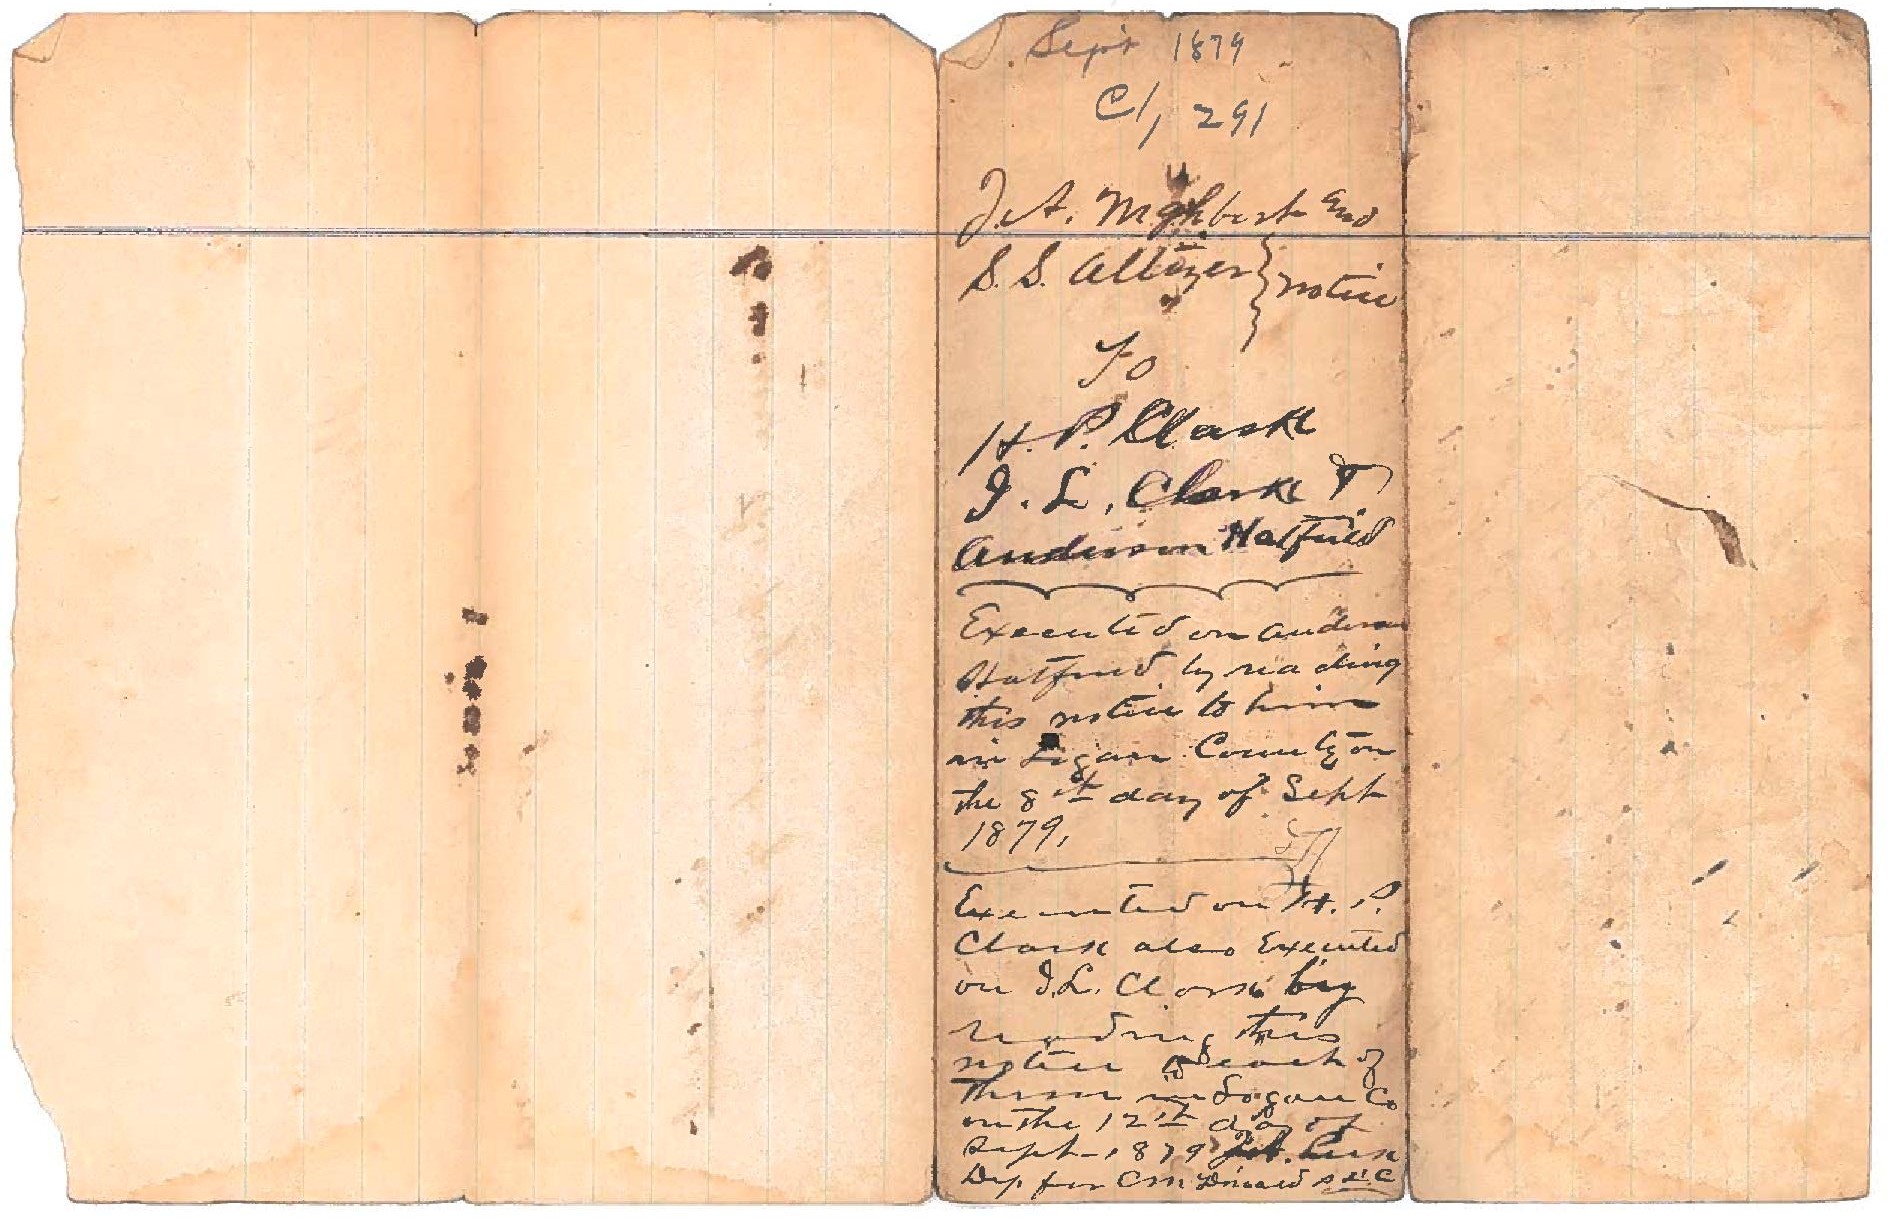 Sept 1879
Cl, 291
J. A. Nighbert and
S. S. Altizer } notice
To
H. P. Clark
J. L. Clark &
Anderson Hatfield
Executed on Anderson
Hatfield by reading
this notice to him
in Logan County on
the 8th day of Sept
1879,
Executed on H. P.
Clark also Executed
on J. L. Clark by
reading this
notice to each of
them in Logan Co
on the 12th day of
Sept 1879
Dep for C M Donald S L C